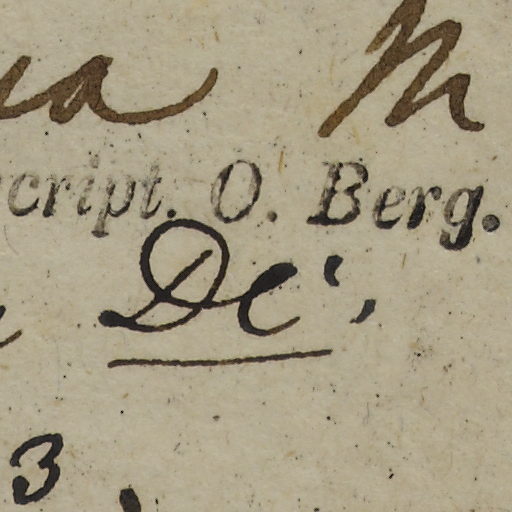 a M
cript. O. Berg.
DC.
3